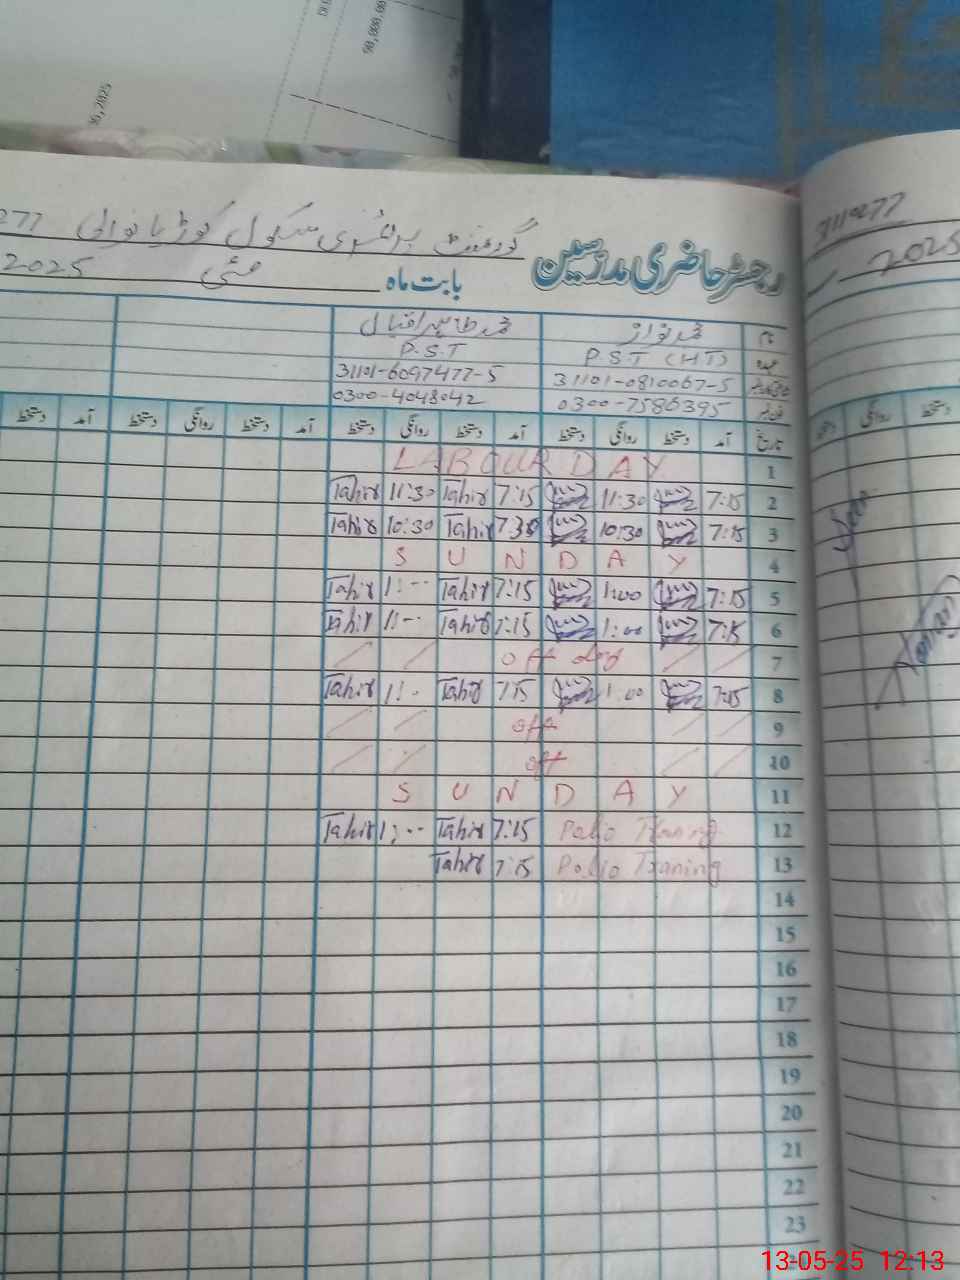 30,2025
90,000.00
3110277
2025
رجسٹر حاضری مدرسین
گورنمنٹ پرائمری سکول کوڑیا نوالی 277
بابت ماہ مئی 2025
نام محمد نواز محمد طاہر اقبال
عہدہ P.S.T (HT) P.S.T
31101-0810067-5 31101-6097477-5
0300-7586395 0300-4048042
تاریخ آمد دستخط روانگی دستخط آمد دستخط روانگی دستخط آمد دستخط روانگی دستخط آمد دستخط
1 LABOUR DAY
2 7:15 11:30 7:15 Tahir 11:30 Tahir
3 7:15 10:30 7:30 Tahir 10:30 Tahir
4 SUNDAY
5 7:15 1:00 7:15 Tahir 1:-- Tahir
6 7:15 1:00 7:15 Tahir 1:-- Tahir
7 off day
8 7:15 1:00 7:15 Tahir 1:- Tahir
9 off
10 off
11 SUNDAY
12 Polio Traning 7:15 Tahir 1:-- Tahir
13 Polio Traning 7:15 Tahir
14
15
16
17
18
19
20
21
22
23
روانگی دستخط
13-05-25 12:13